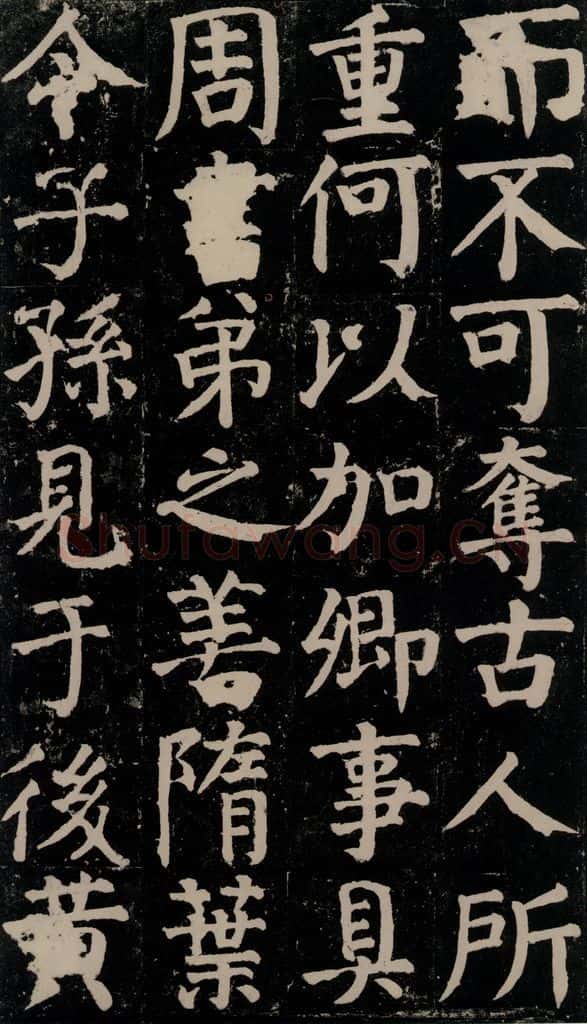 而不可奪古人所
重何以加卿事具
周書弟之善隋葉
令子孫見于後黃
Shufawang.CN